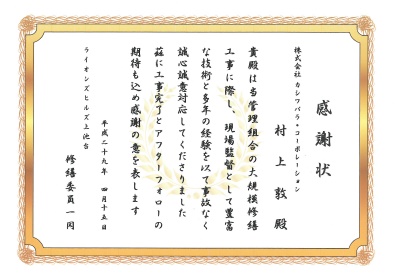 感謝状
株式会社 カシワバラ・コーポレーション
村上敦殿
貴殿は当管理組合の大規模修繕
工事に際し、現場監督として豊富
な技術と多年の経験を以て事故なく
誠心誠意対応してくださりました
茲に工事完了とアフターフォローの
期待も込め感謝の意を表します
平成二十九年 四月十五日
ライオンズヒルズ上池台
修繕委員一同